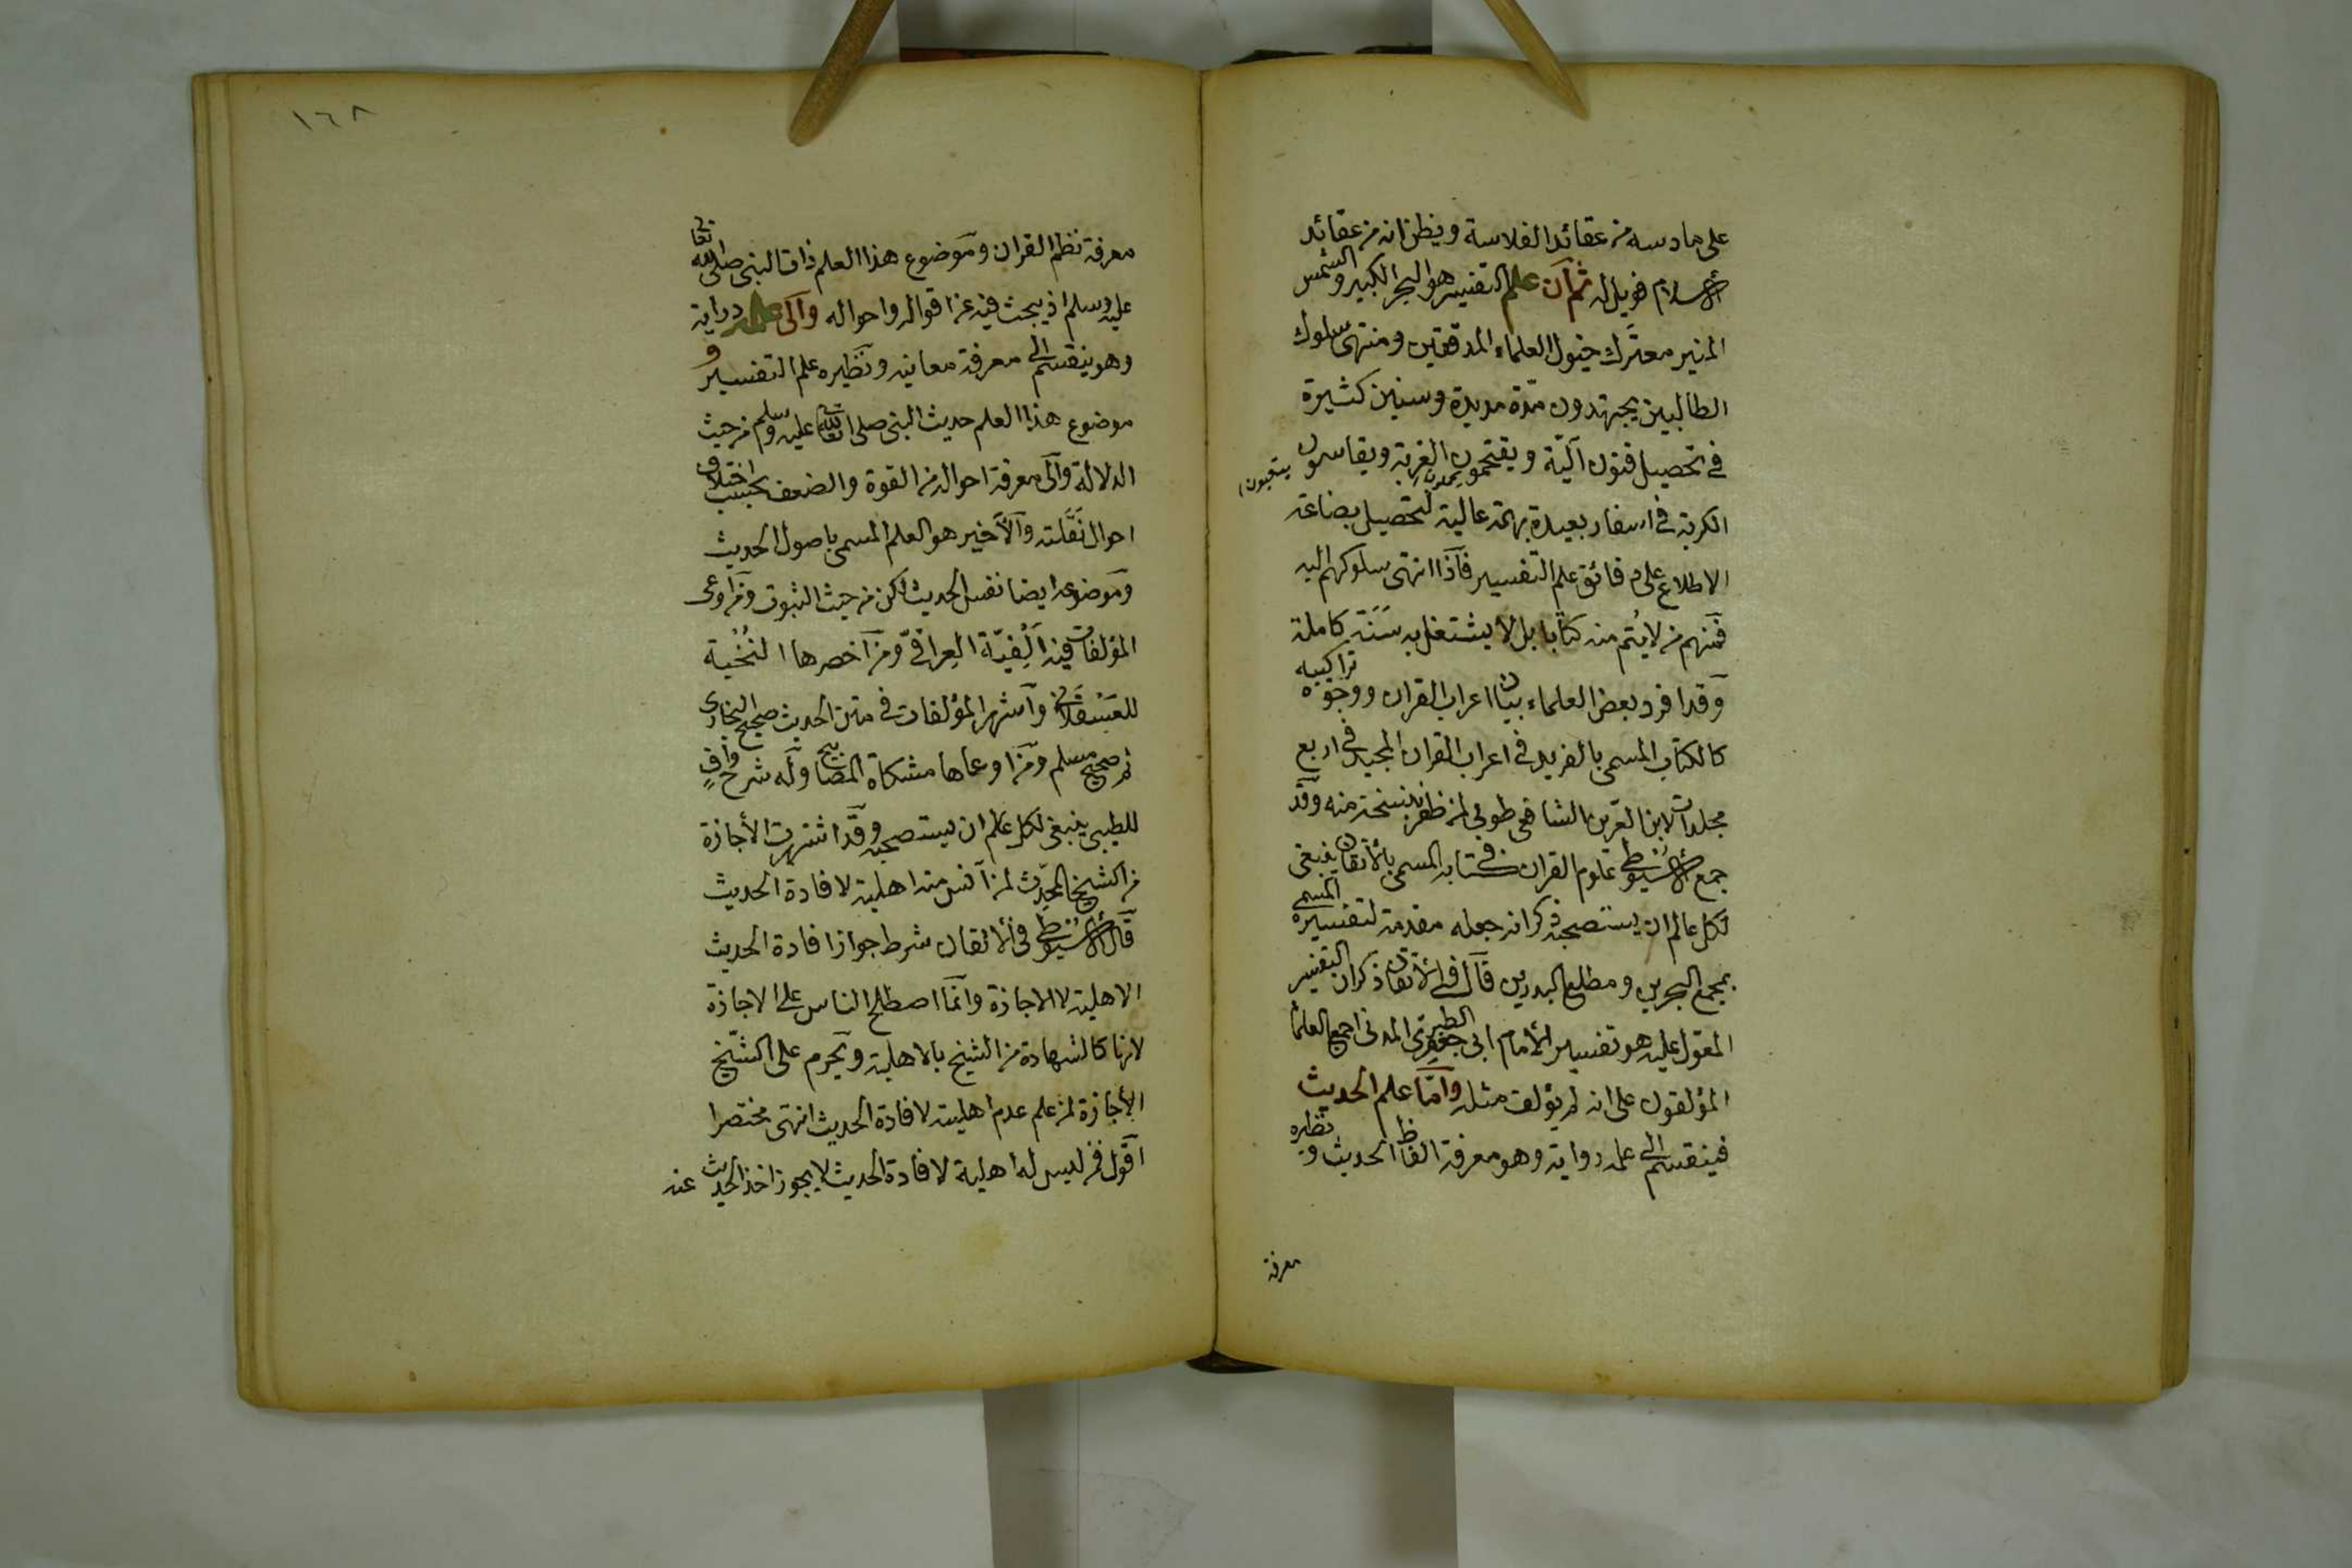 على ما دسه من عقائد الفلاسفة ويظن انه من عقائد
الاسلام فويل له ثم ان علم التفسير هو البحر الكبير والشمس
المنير معترك خيول العلماء المدققين ومنتهى سلوك
الطالبين يجتهدون مدّة مديدة وسنين كثيرة
في تحصيل فنون آليّة ويقتحمون الغربة ويقاسون
الكربة في اسفار بعيدة بهمة عالية لتحصيل بضاعة
الاطلاع على دقائق علم التفسير فاذا انتهى سلوكهم اليه
فمنهم من لا يُتم منه كتابا بل لا يشتغل به سَنَة كاملة
وقد افرد بعض العلماء بيان اعراب القران ووجوه تراكيبه
كالكتاب المسمى بالفريد في اعراب القران المجيد في اربع
مجلدات لابن العز الشافعي طوبى لمن ظفر بنسخة منه وقد
جمع الاسيوطي علوم القران في كتابه المسمى بالاتقان ينبغي
لكل عالم ان يستصحبه ذكر انه جعله مقدمة لتفسيره المسمى
بمجمع البحرين ومطلع البدرين قال في الاتقان ذكر ان التفسير
المعوّل عليه هو تفسير الامام ابي جعفر الطبري المدني اجمع العلماء
المؤلفون على انه لم يؤلف مثله وامّا علم الحديث
فينقسم الى علم رواية وهو معرفة الفاظ الحديث ونظيره
معرفة
١٦٨
معرفة نظم القران وموضوع هذا العلم ذات النبي صلى الله تعالى
عليه وسلم اذ يبحث فيه عن اقواله واحواله والى علم دراية
وهو ينقسم الى معرفة معانيه ونظيره علم التفسير و
موضوع هذا العلم حديث النبي صلى الله تعالى عليه وسلم من حيث
الدلالة والى معرفة احواله من القوة والضعف بحسب اختلاف
احوال نَقَلته والاخير هو العلم المسمى باصول الحديث
وموضوعه ايضا نفس الحديث لكن من حيث الثبوت ومن اوعى
المؤلفات فيه اَلْفيّة العِراقيّ ومن اخصرها النُخبة
للعَسْقَلاني واشهر المؤلفات في متن الحديث صحيح البخاري
ثم صحيح مسلم ومن اوعاها مشكاة المصابيح وله شرح وافٍ
للطيبي ينبغي لكل عالم ان يستصحبه وقد اشتهرت الاجازة
من الشيخ المحدّث لمن آنس منه اهلية لافادة الحديث
قال الاسيوطي في الاتقان شرط جواز افادة الحديث
الاهلية لا الاجازة وانما اصطلح الناس على الاجازة
لانها كالشهادة من الشيخ بالاهلية ويحرم على الشيخ
الاجازة لمن علم عدم اهليته لافادة الحديث انتهى مختصرا
اقول فمن ليس له اهلية لافادة الحديث لا يجوز اخذ الحديث عنه